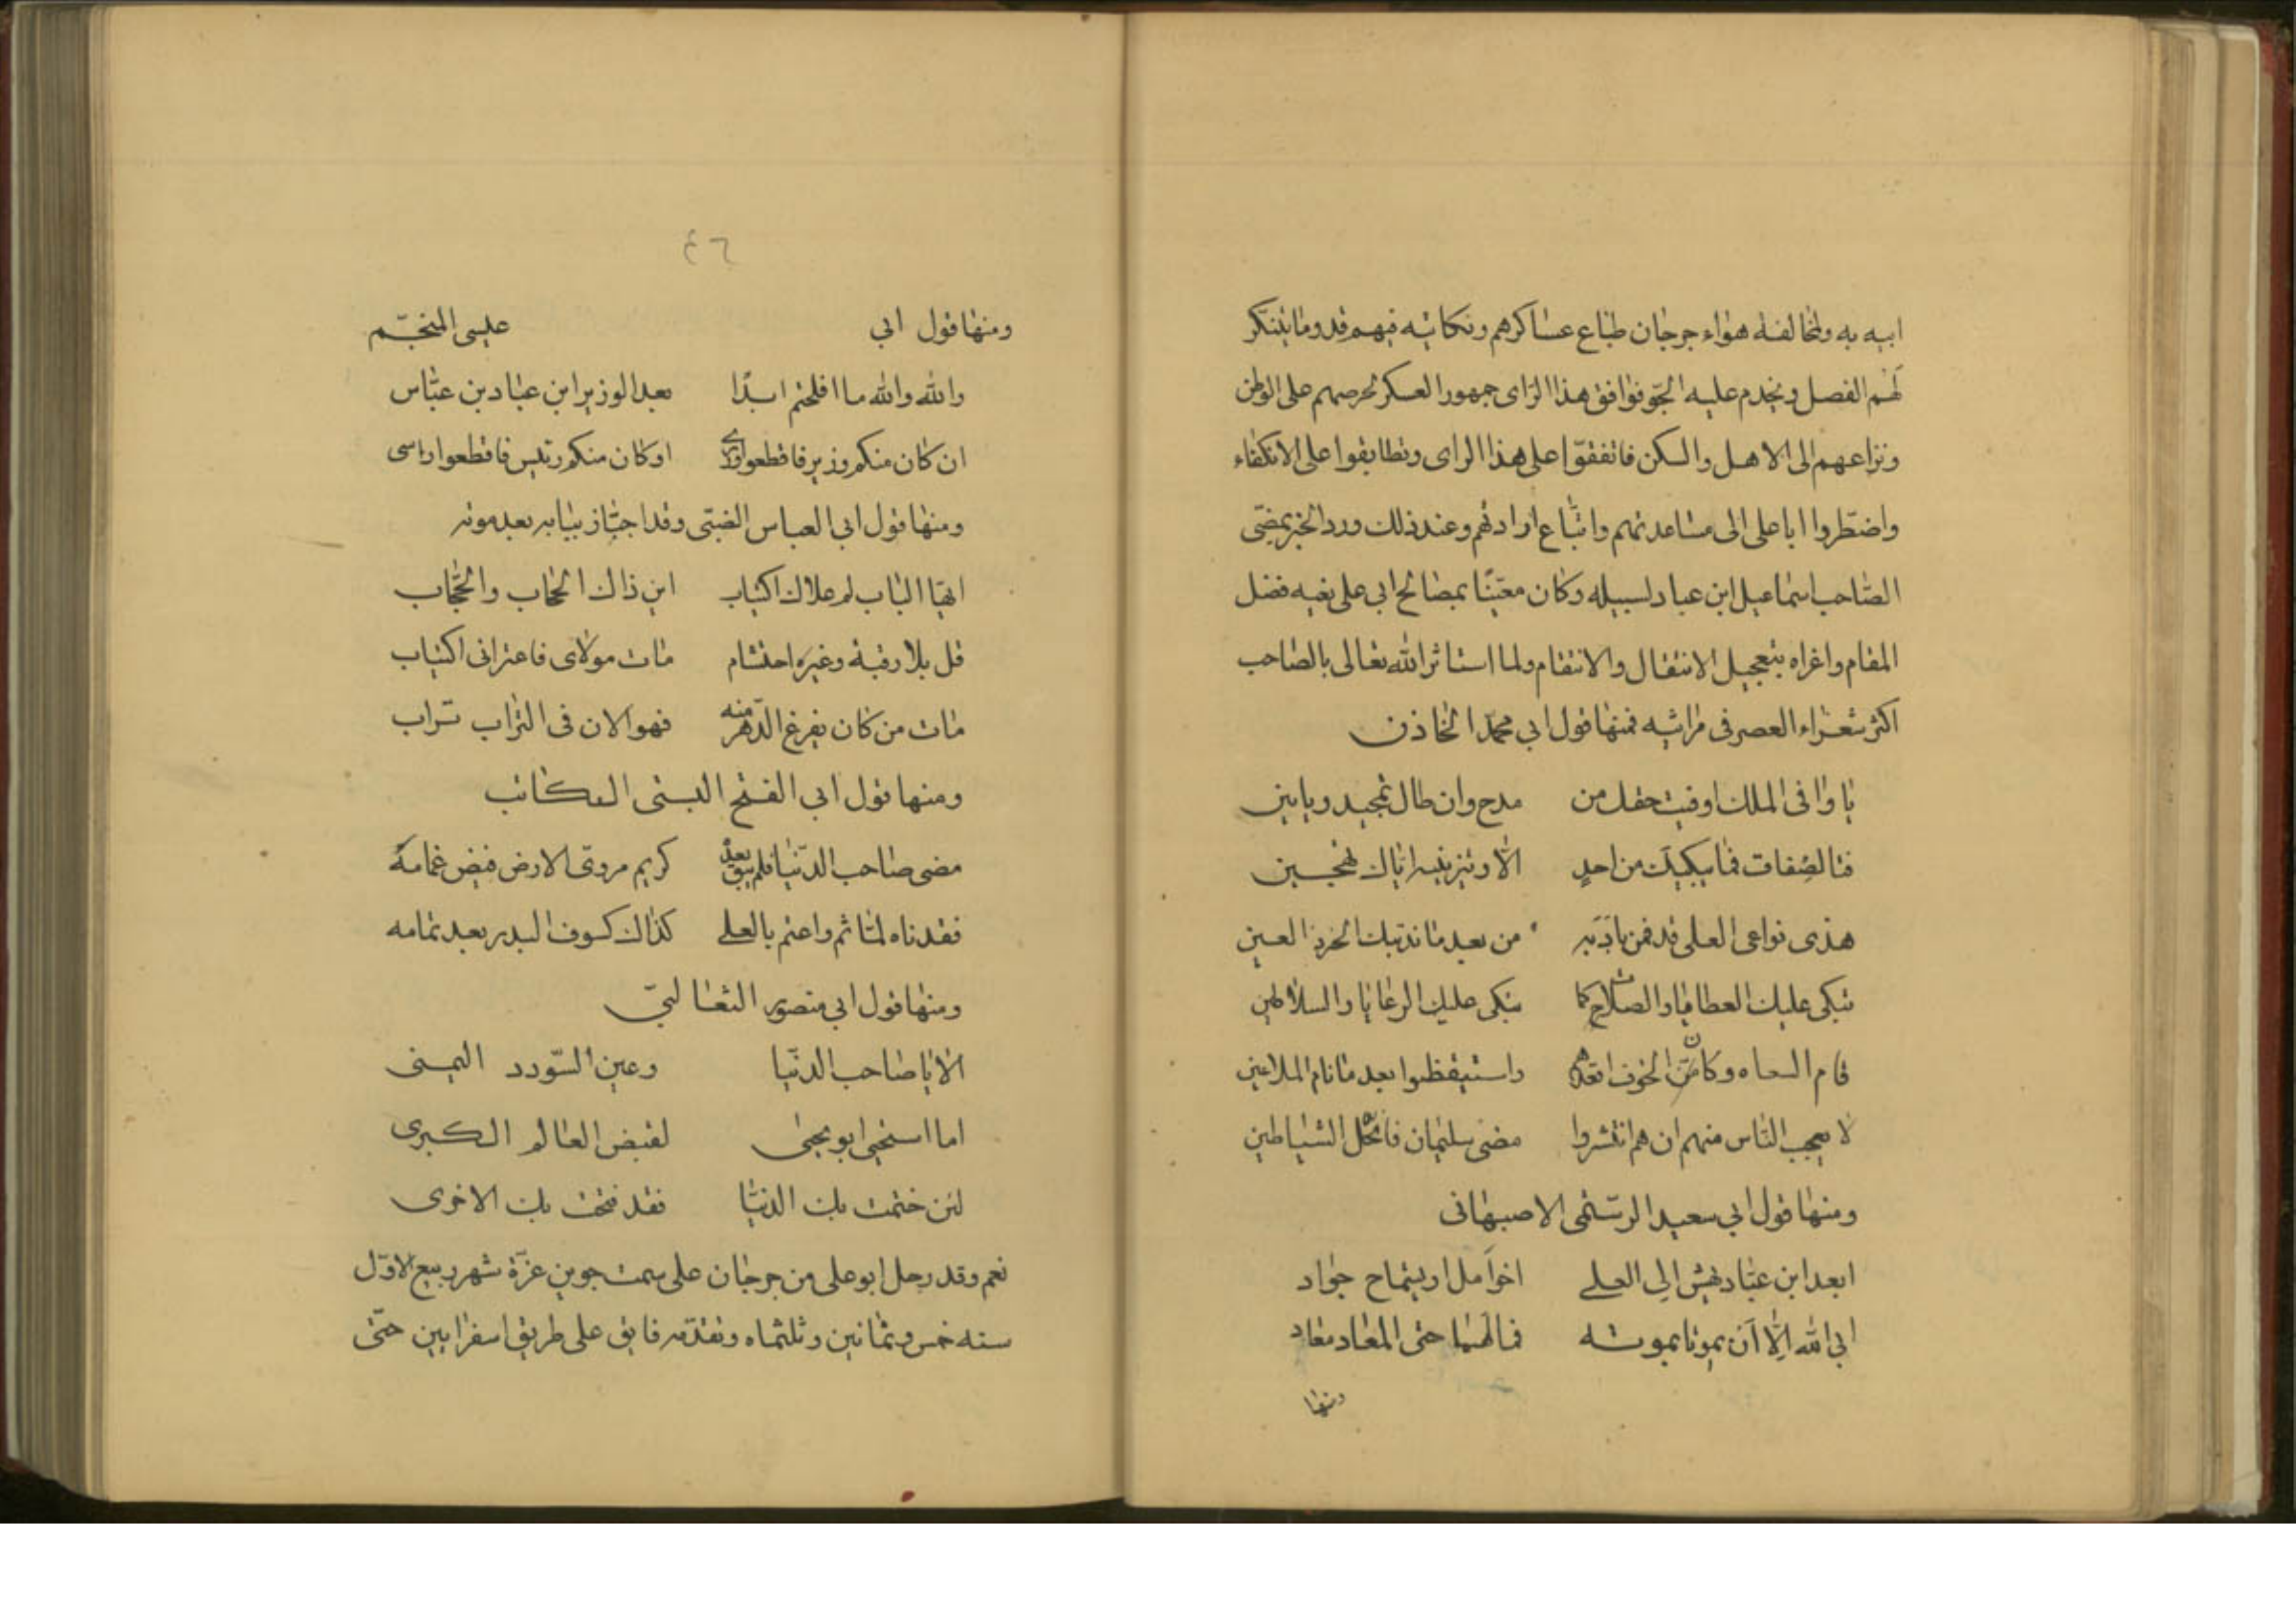 ابيه به ولمخالفة هواء جرجان طباع عساكرهم ونكائيه فيهم قد وما يتنكر
لهم الفصل ويخدم عليه الجو فوافق هذا الراى جمهور العسكر لحرصهم على الوطن
ونزاعهم الى الاهل والسكن فاتفقوا على هذا الراى وتطابقوا على الانكفاء
واضطروا ابا على الى مساعدتهم واتباع ارادتهم وعند ذلك ورد الخبر بمضى
الصاحب اسماعيل ابن عباد لسبيله وكان معينا بمصالح ابى على بغيه فضل
المقام واغراه بتعجيل الانتقال والانتقام ولما استاثر الله تعالى بالصاحب
اكثر شعراء العصر فى مراثيه فمنها قول ابى محمد الخاذن
يا وافى الملك اوفيت حقل من مدح وان طال تمجيد وبابين
فتالصفات فما يبكيك من احد الا وتزيينه اياك تهجين
هذى نواعى العلى قد قمن نادبه من بعد ما ندبتك الخرد العين
تبكى عليك العطايا والصلات كما تبكى عليك الرعايا والسلاطين
قام السعاه وكان الخوف اقعدهم واستيقظوا بعد ما نام الملاعين
لا يعجب الناس منهم ان هم انتشروا مضى سليمان فانحل الشياطين
ومنها قول ابى سعيد الرستمى الاصبهانى
ابعد ابن عباد يهش الى العلے اخو آمل او يستماح جواد
ابى الله الا ان يموتا بموته فما لهما حتى المعاد معاد
ومنها
٤٦
ومنها قول ابى عيسى المنجم
والله والله ما افلحتم ابدا بعد الوزير ابن عباد بن عباس
ان كان منكم وزير فاقطعوا وزرى او كان منكم رئيس فاقطعوا راسى
ومنها قول ابى العباس الضبتى وقد اجتاز ببابه بعد موته
ايها الباب لم علاك اكتياب اين ذاك الحجاب والحجاب
قل بلا رقبة وغيره احتشام مات مولاى فاعترانى اكتياب
مات من كان يفرغ الدهر منه فهو الان فى التراب تراب
ومنها قول ابى الفتح البستى الكاتب
مضى صاحب الدنيا فلم يبق بعده كريم مروى الارض فيض غمامه
فقدناه لما ثم واعتم بالعلے كذاك كسوف البدر بعد تمامه
ومنها قول ابى منصور الثعالبى
الا يا صاحب الدنيا وعين السودد اليمنى
اما استحيى ابو يحيى لقبض العالم الكبرى
لئن ختمت بك الدنيا فقد فتحت بك الاخرى
نعم وقد رحل ابو على من جرجان على سمت جوين غرة شهر ربيع الاول
سنه خمس وثمانين وثلثماه وتقدمه فايق على طريق اسفرايين حتى